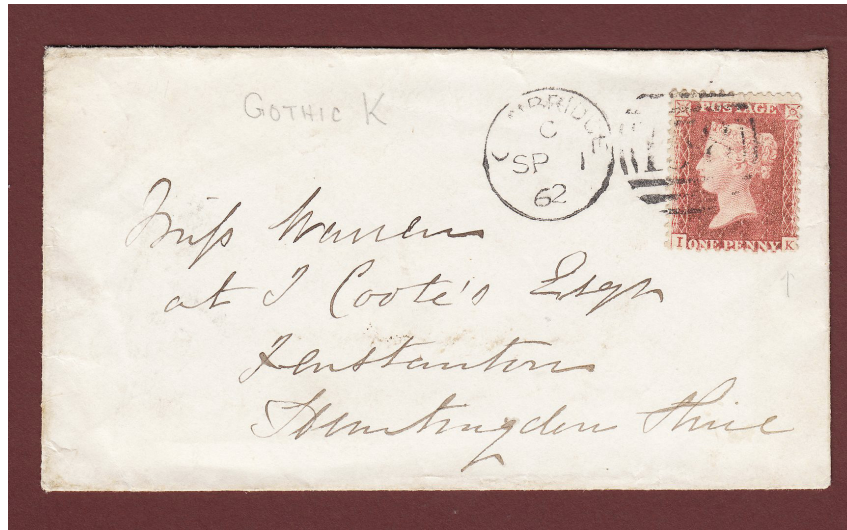 GOTHIC K
C MBRIDGE
C
SP 1
62
POSTAGE
I ONE PENNY K
Miss Warren
at J Coote's Esqr
Fenstanton
Huntingdon Shire